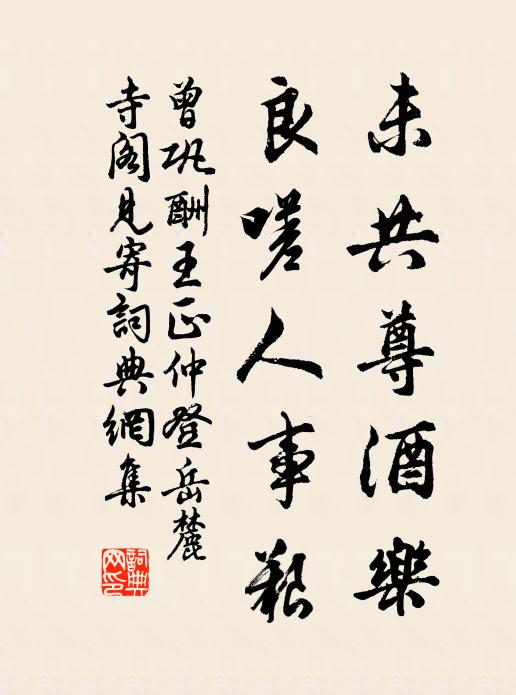 未共尊酒樂
良嗟人事艱
曾巩酬王正仲登岳麓
寺阁見寄詞典網集
詞典網印